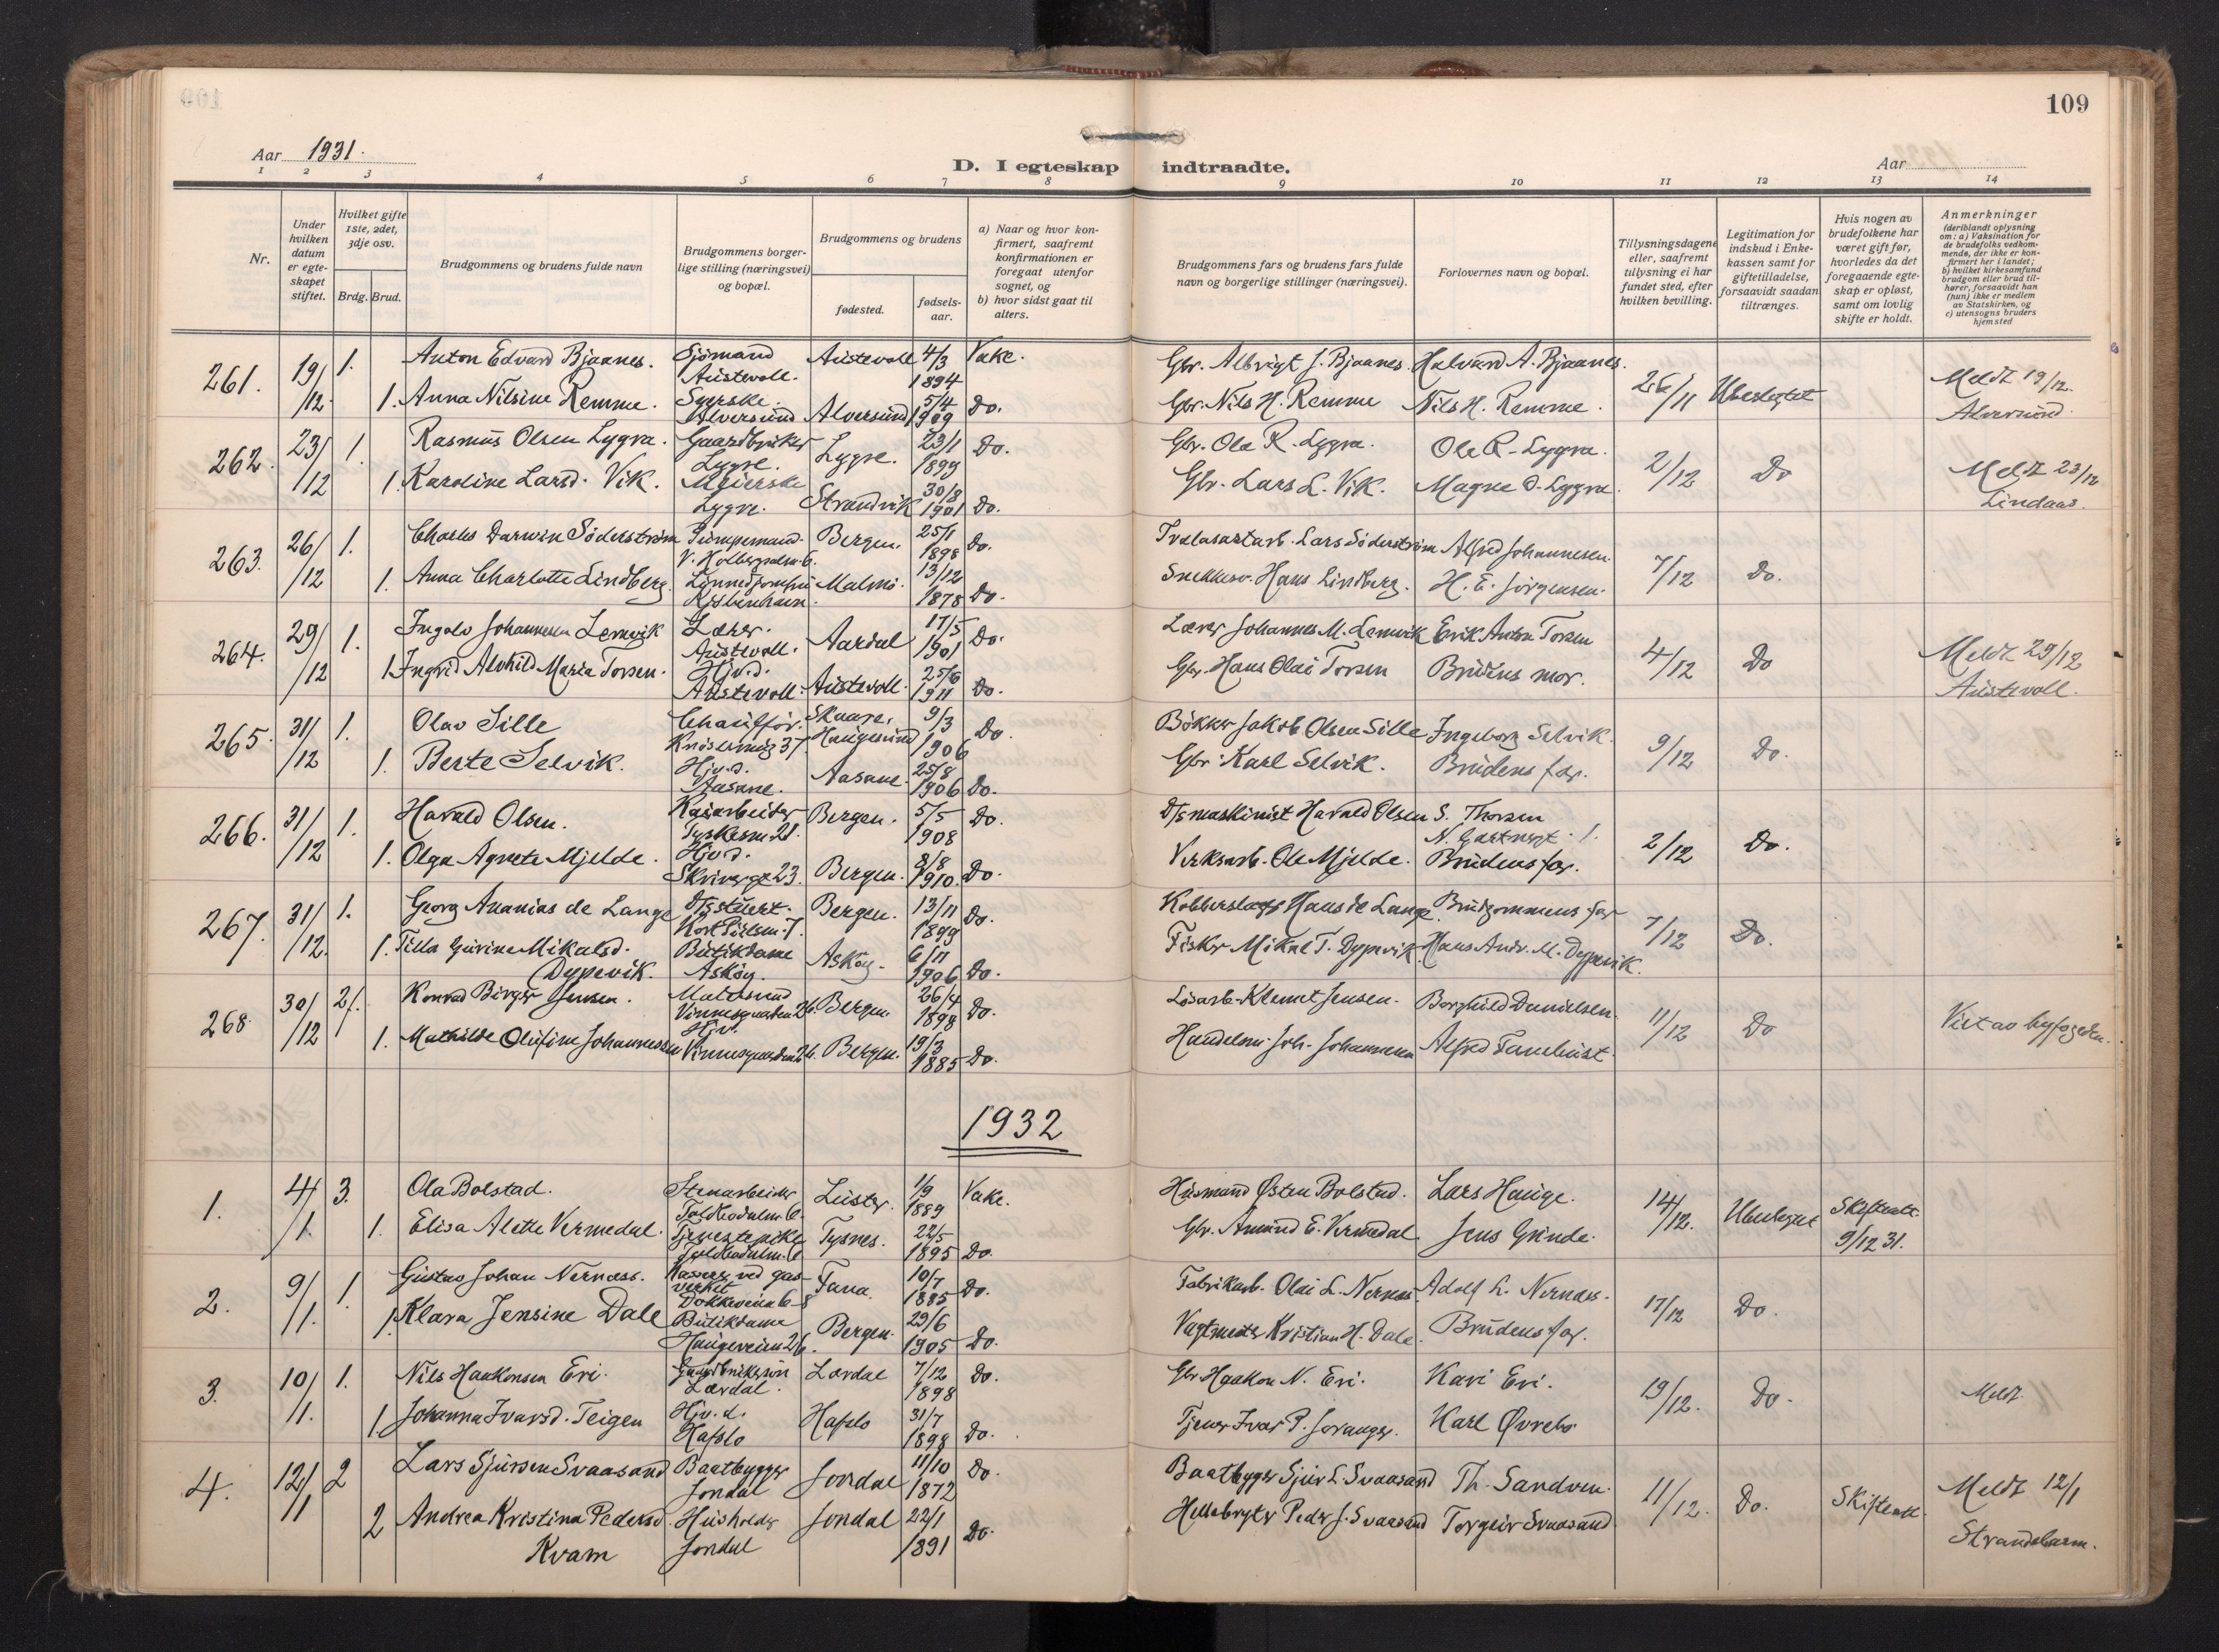 109
Aar 1931.
D. I egteskap indtraadte.
Aar
1 2 3 4 5 6 7 8 9 10 11 12 13 14
Nr.
Under hvilken datum er egteskapet stiftet.
Hvilket gifte 1ste, 2det, 3dje osv.
Brdg. Brud.
Brudgommens og brudens fulde navn
Brudgommens borgerlige stilling (næringsvei) og bopæl.
Brudgommens og brudens
fødested.
fødselsaar.
a) Naar og hvor konfirmert, saafremt konfirmationen er foregaat utenfor sognet, og
b) hvor sidst gaat til alters.
Brudgommens fars og brudens fars fulde navn og borgerlige stillinger (næringsvei).
Forlovernes navn og bopæl.
Tillysningsdagene eller, saafremt tillysning ei har fundet sted, efter hvilken bevilling.
Legitimation for indskud i Enkekassen samt for giftetilladelse, forsaavidt saadan tiltrænges.
Hvis nogen av brudefolkene har været gift før, hvorledes da det foregaaende egteskap er opløst, samt om lovlig skifte er holdt.
Anmerkninger (deriblandt oplysning om: a) Vaksination for de brudefolks vedkommende, der ikke er konfirmert her i landet; b) hvilket kirkesamfund brudgom eller brud tilhører, forsaavidt han (hun) ikke er medlem av Statskirken, og c) utensogns bruders hjemsted
261. 19/12 1. Anton Edvard Bjaanes. Sjömand Austevoll. Austevoll 4/3 1894 Vake. Gbr. Albrigt J. Bjaanes. Halvard A. Bjaanes. 26/11 Ubeslegtet Meldt 19/12. Alversund.
1. Anna Nilsine Remme. Syerske. Alversund Alversund 5/4 1909 Do. Gbr. Nils H. Remme Nils H. Remme.
262. 23/12 1. Rasmus Olsen Lygra. Gaardbruker Lygre. Lygre. 23/1 1899 Do. Gbr. Ola R. Lygra. Ole R. Lygra. 2/12 Do Meldt 23/12 Lindaas.
1. Karoline Larsd. Vik. Meierske Lygre. Strandvik 30/8 1901 Do. Gbr. Lars L. Vik. Magne O. Lygra.
263. 26/12 1. Charles Darwin Söderström Pumpemand. V. Holbergsalm. 6. Bergen. 25/1 1898 Do. Lars Söderström Alfred Johannesen. 7/12 Do.
1. Anna Charlotte Lindberg. Kjöbenhavn. Malmö. 13/12 1878 Do. Snekkersv. Hans Lindberg. H. E. Jörgensen.
264. 29/12 1. Ingolv Johannesen Lemvik Lærer. Austevoll. Aardal 17/5 1901 Do. Lærer Johannes M. Lemvik Erik Anton Torsen 4/12 Do Meldt 29/12 Austevoll.
1. Ingrid Alvhild Maria Torsen. Hjv.d. Austevoll. Austevoll. 25/6 1911 Do. Gbr. Hans Olai Torsen Brudens mor.
265. 31/12 1. Olav Sille Chauffør. Knøsesmug 37 Skaare, Haugesund 9/3 1906 Do. Bökker Jakob Olsen Sille Ingeborg Selvik. 9/12 Do.
1. Berte Selvik. Hjv.d. Aasane. Aasane. 25/8 1906 Do. Gbr. Karl Selvik. Brudens far.
266. 31/12 1. Harald Olsen. Kaiarbeider Tyskesm 21. Bergen. 5/5 1908 Do. D/S maskinist Harald Olsen S. Thorsen N. Gartnergt. 1. 2/12 Do.
1. Olga Agnete Mjelde. Hjv.d. Skriverge 23. Bergen. 8/8 1910. Do. Verksarb. Ole Mjelde. Brudens far.
267. 31/12. 1. Georg Ananias de Lange D/S stuert. Bergen. 13/11 1899 Do. Kobberslager Hans de Lange. Brudgommens far 7/12 Do.
1. Tilla Gurine Mikalsd. Dypevik. Butikdame Asköy. Asköy. 6/11 1906 Do. Fisker Mikal T. Dypevik Hans Andr. M. Dypevik.
268. 30/12 2. Konrad Birger Jensen. Vinnesgaarden 26. Bergen. 26/4 1898 Do. Løsarb. Klemet Jensen. Borghild Danielsen. 11/12 Do Viet av byfogden.
1. Mathilde Olufine Johannessen Hjv. Vinnesgaarden 26. Bergen. 19/3 1885 Do. Handelsm. Joh. Johannesen Alfred
1932
1. 4/1. 3. Ola Bolstad. Stenarbeider Toldbodalm. 6. Luster. 1/9 1889 Vake. Husmand Østen Bolstad. Lars Hauge. 14/12. Ubeslegtet Skifteatt. 9/12 31.
1. Elisa Alette Vermedal. Tjenestepike Toldbodalm. 6 Tysnes. 22/5 1895 Do. Gbr. Amund E. Vermedal. Jens Grinde.
2. 9/1. 1. Gustav Johan Nernæss. Kasserer ved gasverket Dokkeveien 6-8 Fana. 10/7 1885 Do. Fabrikarb. Olai L. Nernæs. Adolf L. Nernæs. 17/12 Do.
1. Klara Jensine Dale Butikdame Haugeveien 26. Bergen. 29/6 1905 Do. Vagtmester Kristian H. Dale. Brudens far.
3. 10/1. 1. Nils Haakonsen Eri. Gaardbrukersön Lærdal. Lærdal 7/12 1898 Do. Gbr Haakon N. Eri. Kari Eri. 19/12. Do. Meldt.
1. Johanna Ivarsd. Teigen Hjv.d. Hafslo Hafslo 31/7 1898 Do. Tjener Ivar P. Soranger. Karl Øvrebø
4. 12/1 2 Lars Sjursen Svaasand Baatbygger Jondal Jondal 11/10 1872 Do. Baatbygger Sjur L. Svaasand Th. Sandven. 11/12. Do. Skifteatt. Meldt 12/1 Strandebarm.
2 Andrea Kristina Pedersd. Kvam Husholder Jondal Jondal 22/1 1891 Do. Hellebryter Peder J. Svaasand Torgeir Svaasand.